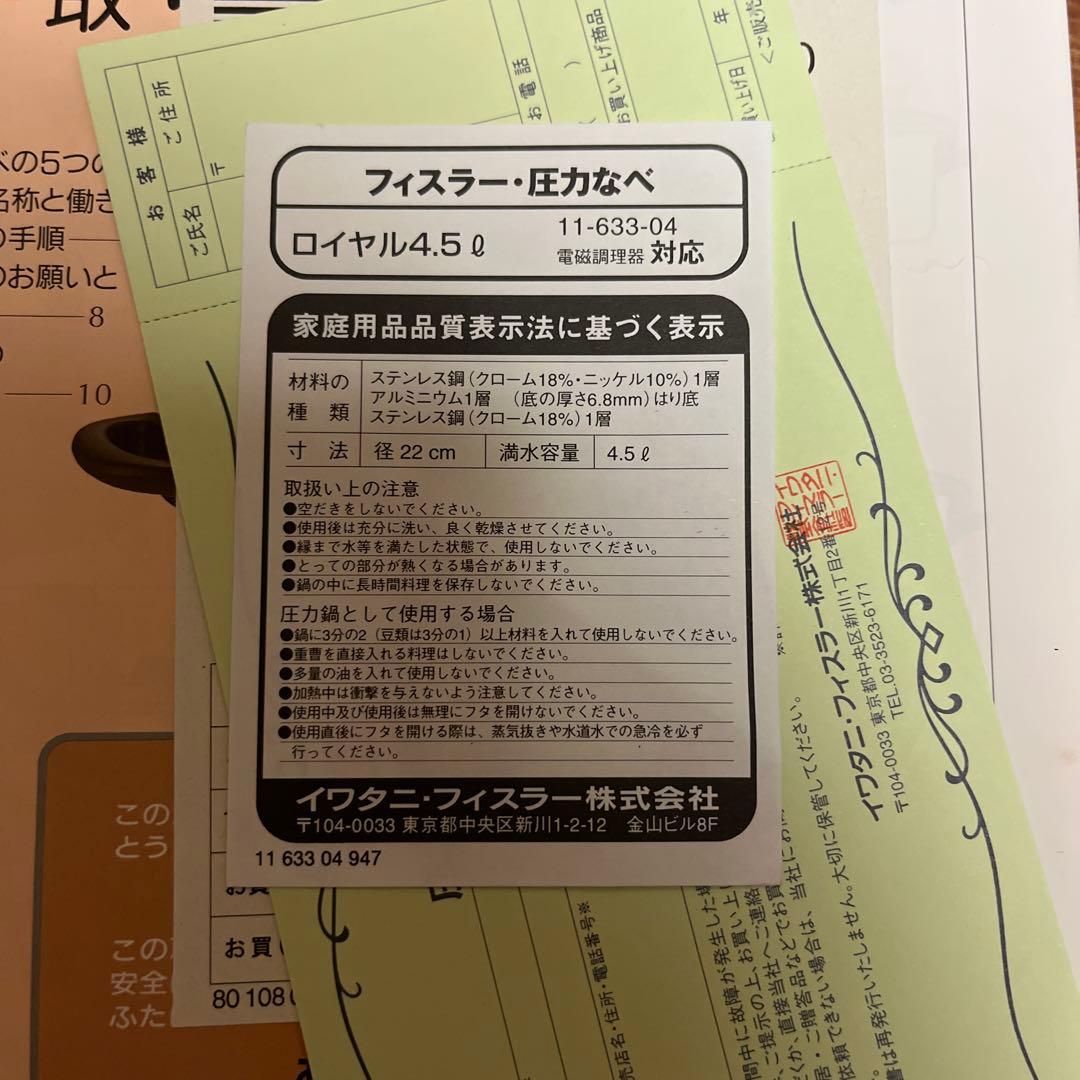 フィスラー・圧力なべ
ロイヤル4.5ℓ
11-633-04
電磁調理器 対応
家庭用品品質表示法に基づく表示
材料の種類
ステンレス鋼(クローム18%・ニッケル10%)1層
アルミニウム1層 (底の厚さ6.8mm)はり底
ステンレス鋼(クローム18%)1層
寸法 径22cm 満水容量 4.5ℓ
取扱い上の注意
●空だきをしないでください。
●使用後は充分に洗い、良く乾燥させてください。
●縁まで水等を満たした状態で、使用しないでください。
●とっての部分が熱くなる場合があります。
●鍋の中に長時間料理を保存しないでください。
圧力鍋として使用する場合
●鍋に3分の2(豆類は3分の1)以上材料を入れて使用しないでください。
●重曹を直接入れる料理はしないでください。
●多量の油を入れて使用しないでください。
●加熱中は衝撃を与えないよう注意してください。
●使用中及び使用後は無理にフタを開けないでください。
●使用直後にフタを開ける際は、蒸気抜きや水道水での急冷を必ず
行ってください。
イワタニ・フィスラー株式会社
〒104-0033 東京都中央区新川1-2-12 金山ビル8F
11 633 04 947
お客様
ご住所
〒
ご氏名
お電話
お買い上げ商品
年
い上げ日
<ご販売
イワタニ・フィスラー株式会社
〒104-0033 東京都中央区新川1丁目2番
TEL.03-3523-6171
売店名・住所・電話番号※
間中に故障が発生した場
ご提示の上、お買い上
直接当社へご連絡
ご贈答品などでお買
依頼できない場合は、当社にお
書は再発行いたしません。大切に保管してください。
取
べの5つの
名称と働き
の手順
のお願いと
8
10
この
とう
この
安全
ふた
お買
お買い
80 108